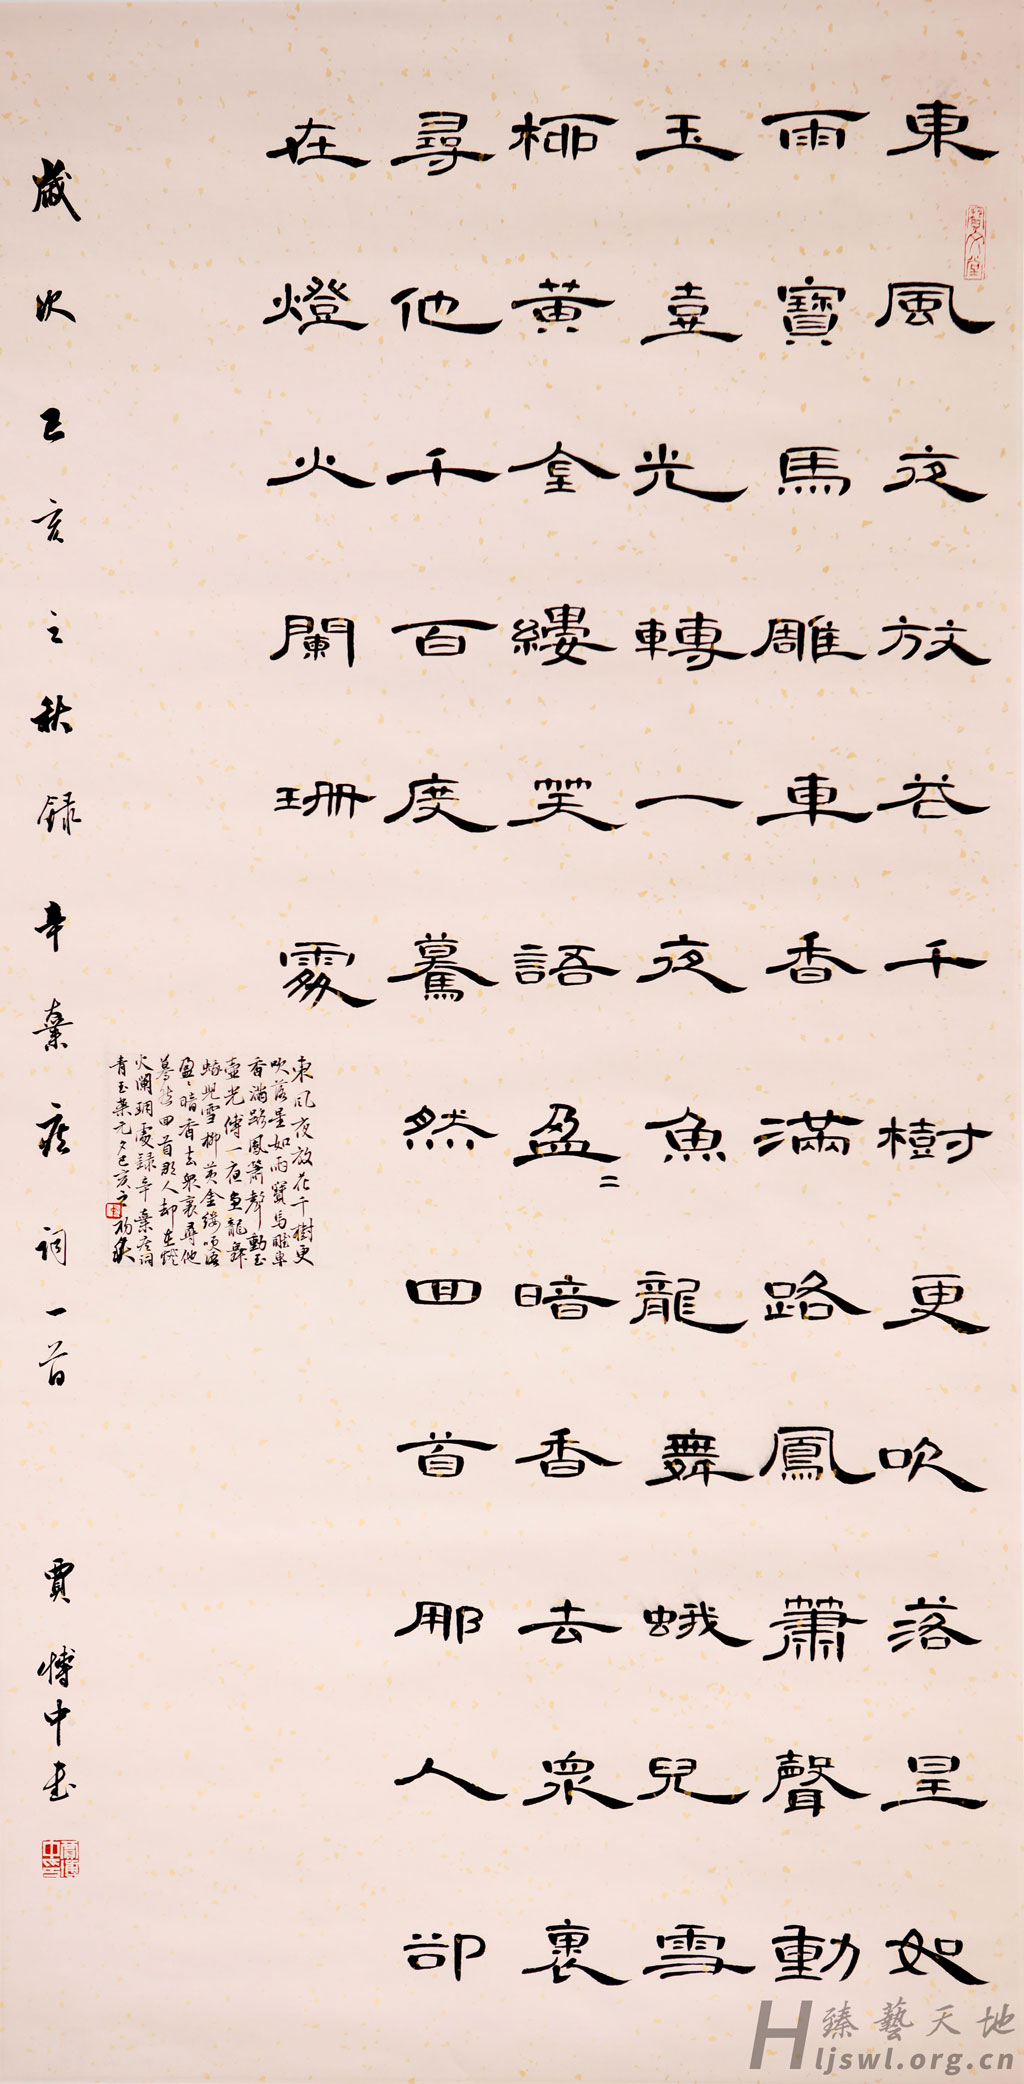 東風夜放花千樹更吹落星如
雨寶馬雕車香滿路鳳簫聲動
玉壺光轉一夜魚龍舞蛾兒雪
柳黃金縷笑語盈二暗香去眾裏
尋他千百度驀然回首那人卻
在燈火闌珊處
東風夜放花千樹更
吹落星如雨寶馬雕車
香滿路鳳簫聲動玉
壺光轉一夜魚龍舞
蛾兒雪柳黃金縷笑語
盈盈暗香去眾裏尋他
驀然回首那人卻在燈
火闌珊處錄辛棄疾詞
青玉案元夕己亥之初
歲次己亥之秋錄辛棄疾詞一首 賈博中書
臻藝天地
Hljswl.org.cn